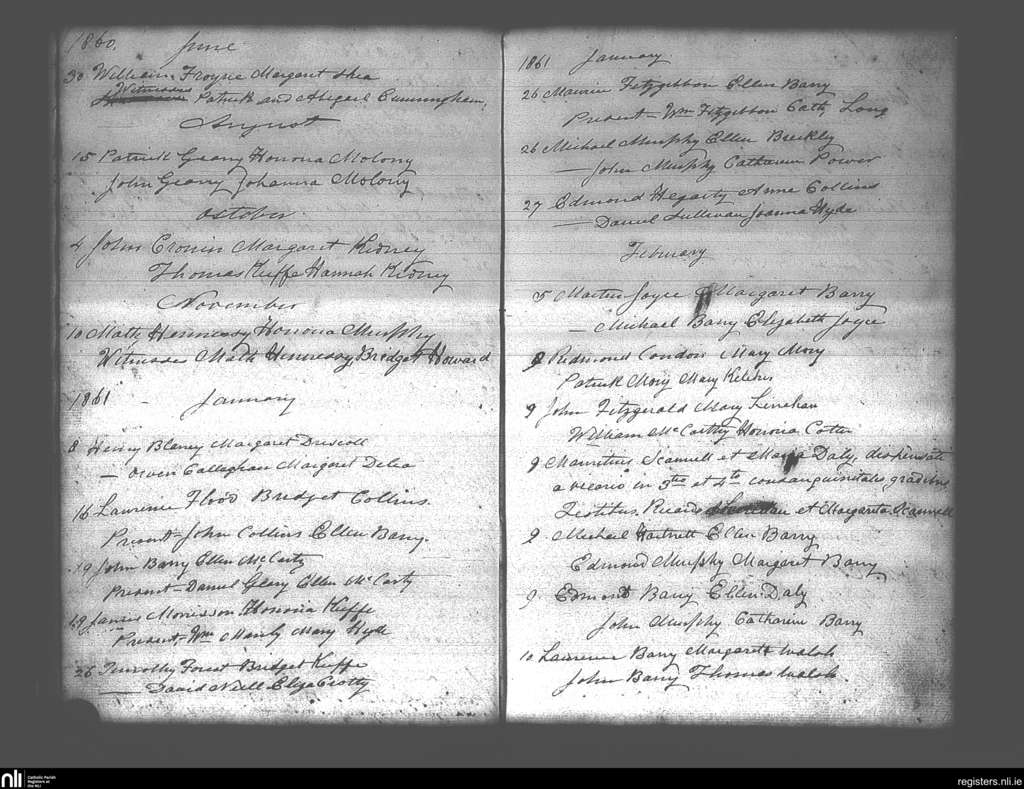 1860. June
30 William Margaret Shea
Witnesses Patrick and Abigail Cunningham,
August
15 Patrick Geary Honora Molony
John Geary Johanna Molony
October
4 John Cronin Margaret Kidney
Thomas Keeffe Hannah Kidney
November
10 Matth Hennessy Honora Murphy
Witnesses Matth Hennessy, Bridget Howard
1861 - January
8 Henry Blaney Margaret Driscoll
— Owen Callaghan Margaret Delea
16 Laurence Flood Bridget Collins.
Present - John Collins Ellen Barry.
19 John Barry Ellen McCarty
Present - Daniel Geary Ellen McCarty
19 James Morrisson Honoria Keeffe
Present, Wm Manly Mary Hyde
26 Timothy Forest Bridget Keeffe
— David Neill Eliza Crotty
1861 January
26 Maurice Fitzgibbon Ellen Barry
Present - Wm Fitzgibbon Cath, Long
26 Michael Murphy Ellen Buckley
— John Murphy Catharine Power
27 Edmond Hegarty Anne Collins
— Daniel Sullivan Joanna Hyde
February
5 Martin Joyce Margaret Barry
— Michael Barry Elizabeth Joyce
9 Redmond Condon Mary Mory
Patrick Mory Mary
9 John Fitzgerald Mary Linehan
William McCarthy Honoria Cotter
9 Mauritius Scannell et Maria Daly, dispensati
a vicario in 3tio et 4to consanguinitatis gradibus,
Testibus, Ricardo et Margarita Scannell
9 Michael Hartnett Ellen Barry
Edmond Murphy Margaret Barry
9 Edmond Barry Ellen Daly
John Murphy Catharine Barry
10 Laurence Barry Margaret Walsh
John Barry Thomas Walsh.
nli
Catholic Parish
Registers at
the NLI
registers.nli.ie